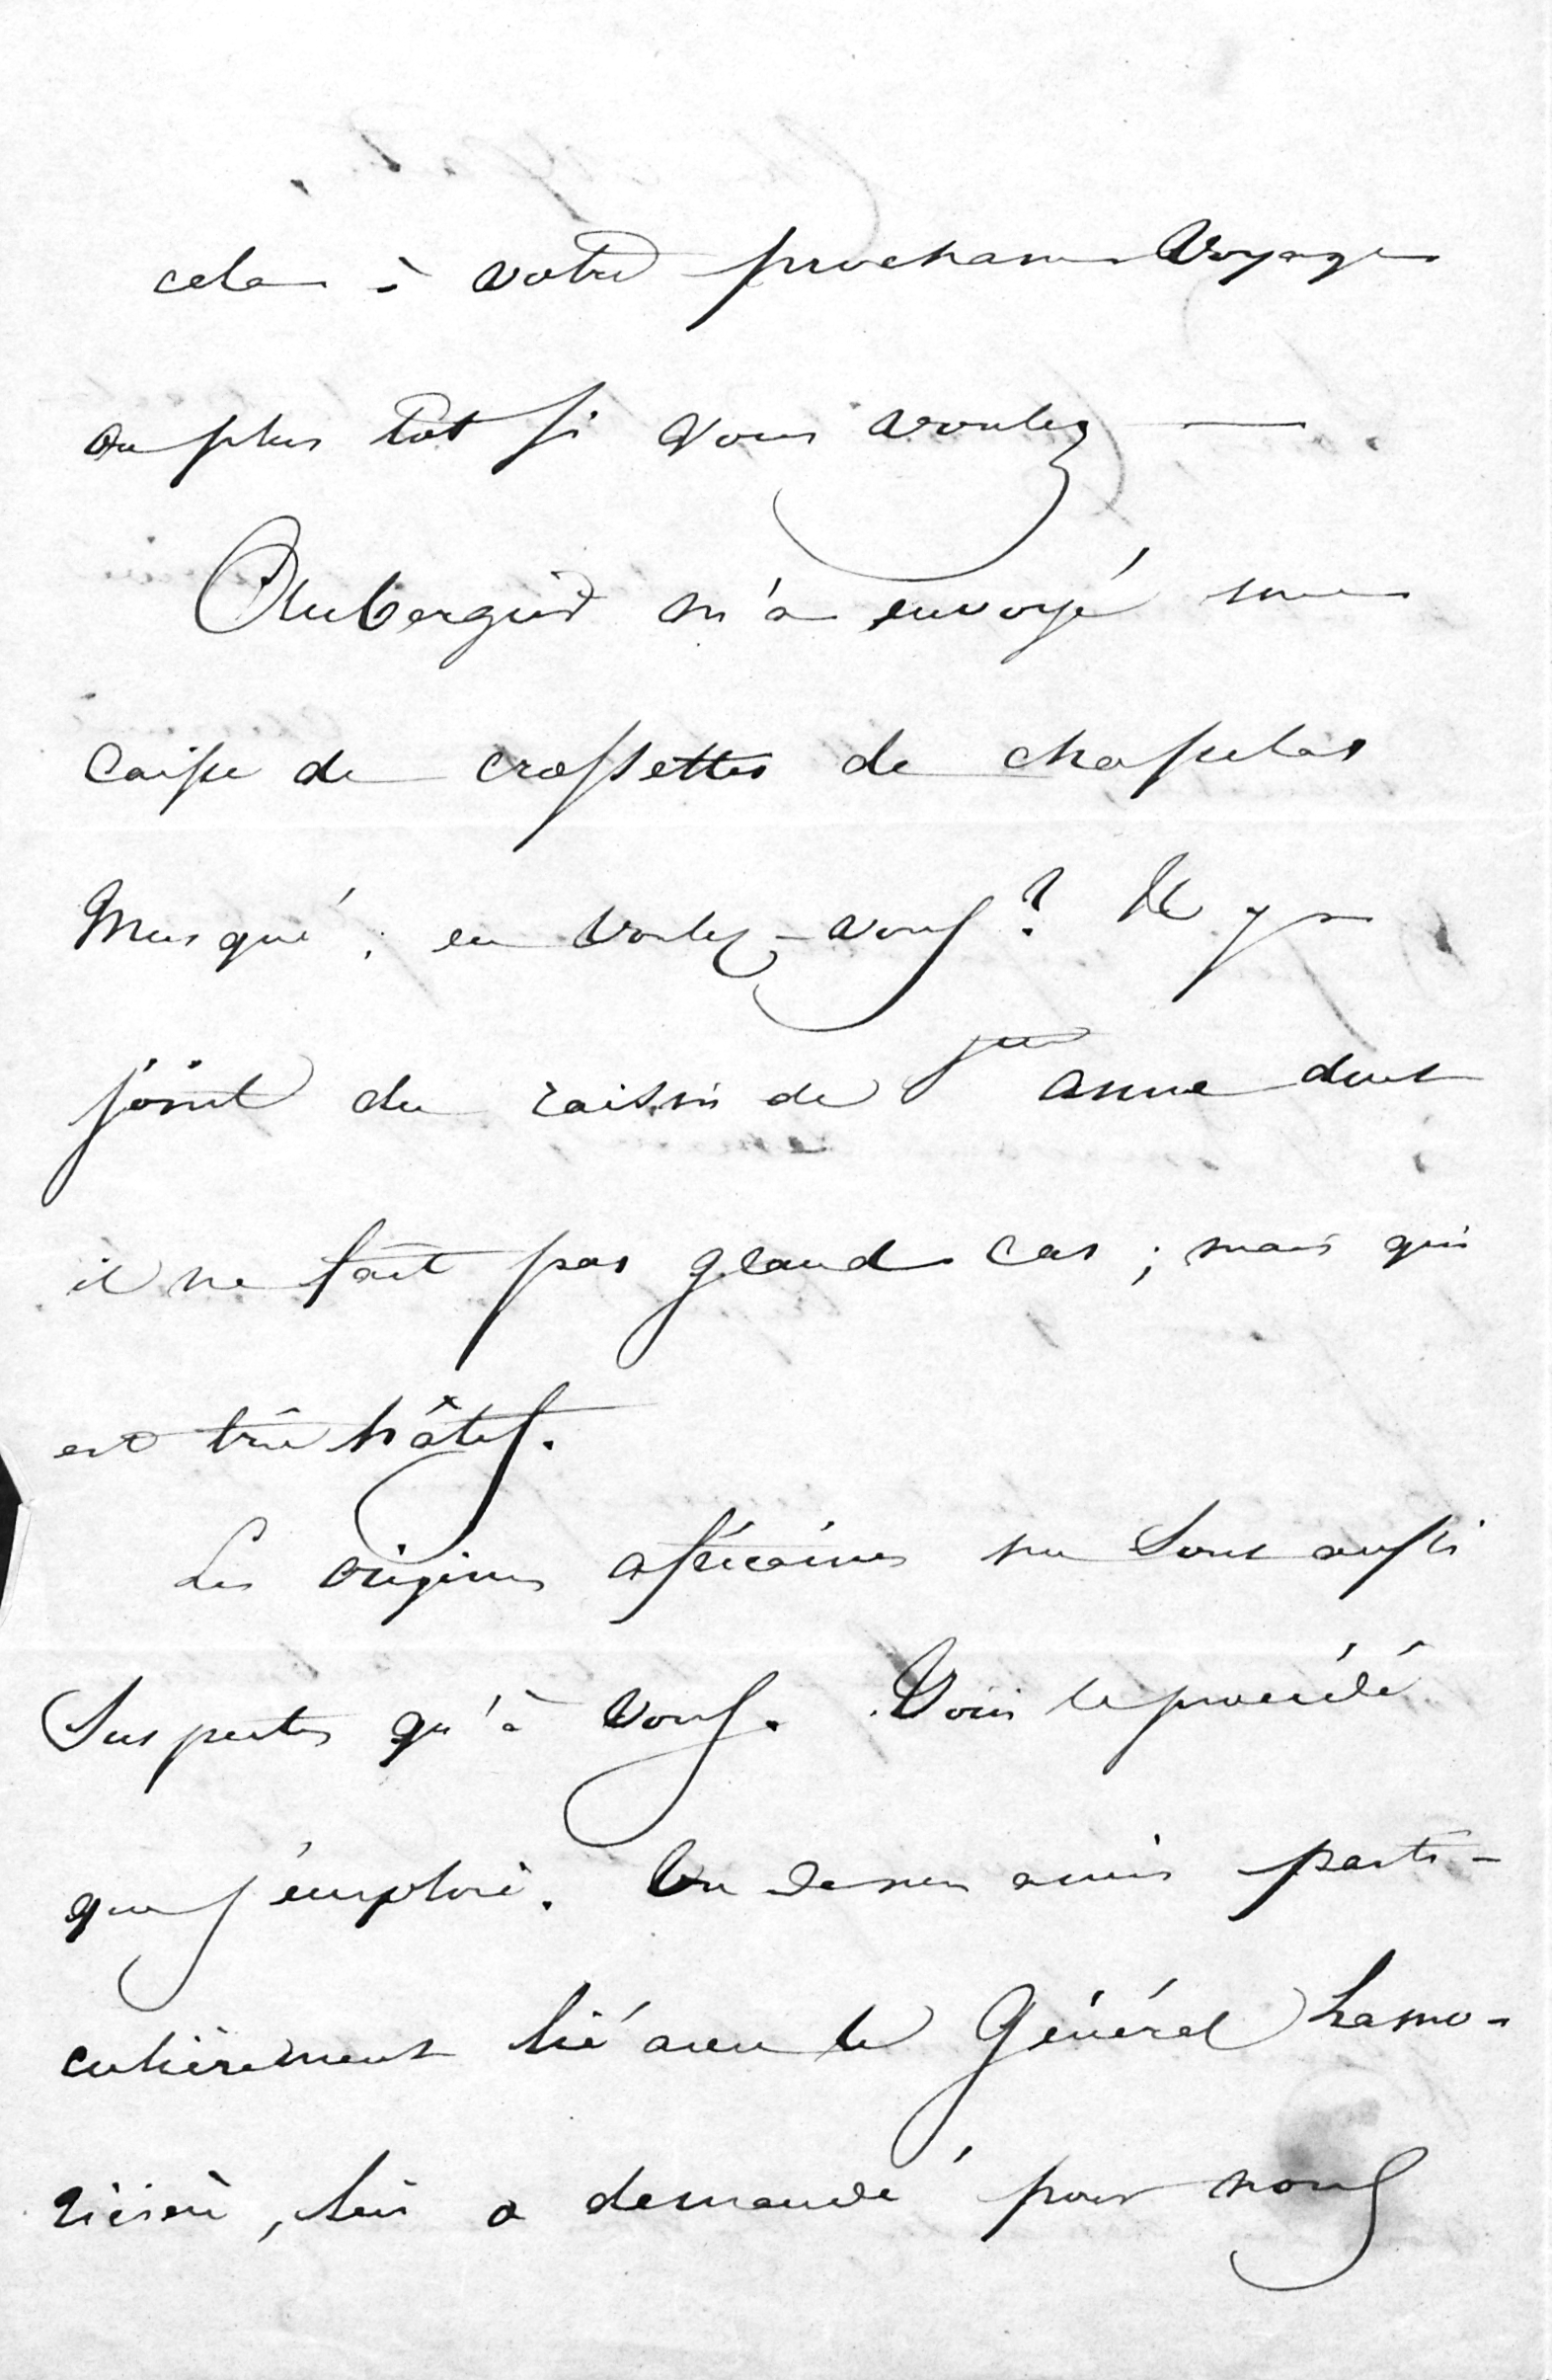 cela à votre prochain voyage
ou plus tôt si vous voulez —
Aubergier m'a envoyé une
caisse de crossettes de chasselas
Musqué ; en voulez-vous ? Il y a
joint du raisin de anne dont
il ne fait pas grand cas ; mais qui
est très hâtif.
Les origines africaines me sont aussi
suspectes qu'à vous. Voici le procédé
que j'emploie. Un de mes amis parti-
culièrement lié avec le Général Lamo-
ricière, lui a demandé pour nous